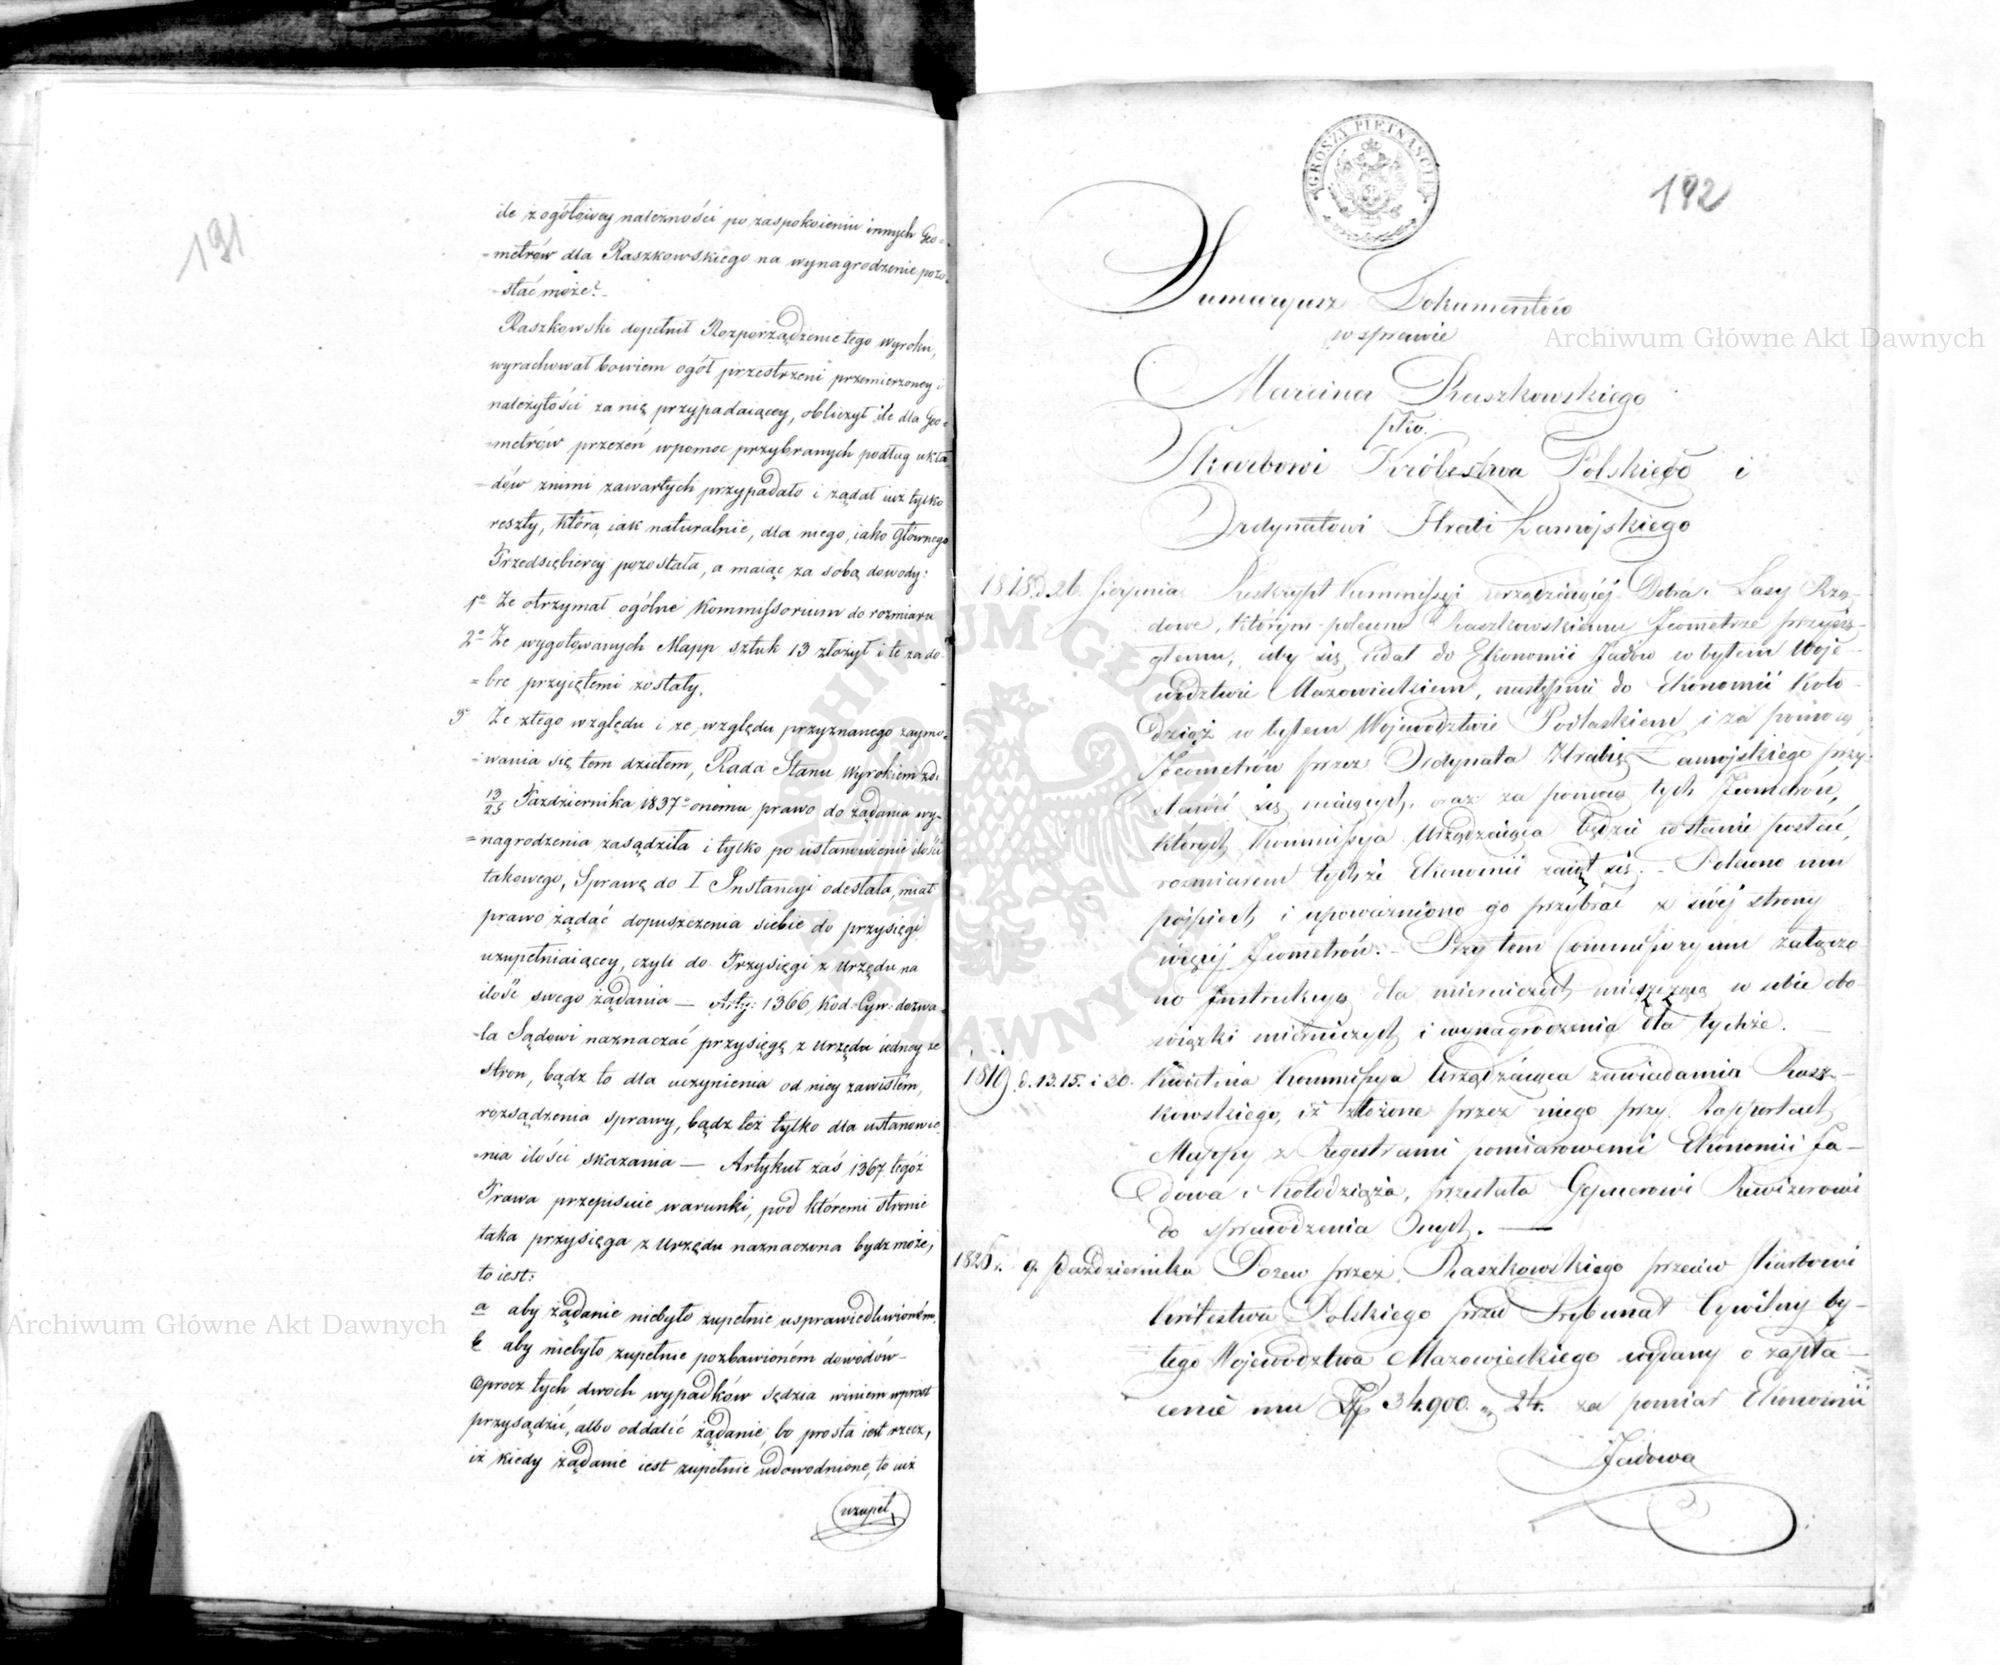 191
ile z ogółowey należności po zaspokoieniu innych Geo=
=metrów dla Raszkowskiego na wynagrodzenie pozo=
=stać może?
Raszkowski dopełnił Rozporządzenie tego wyroku,
wyrachował bowiem ogół przestrzeni przemierzoney i
należytości za nią przypadaiącey, obliczył ile dla Geo=
=metrów przezeń w pomoc przybranych podług ukła=
=dów z nimi zawartych przypadało i żądał iuż tylko
reszty, która iak naturalnie, dla niego, iako Głównego
Przedsiębiercy pozostała, a maiąc za sobą dowody:
1º Że otrzymał ogólne Kommissorium do rozmiaru
2º Że wygotowanych Mapp sztuk 13 złożył i te za do=
=bre przyiętemi zostały.
3º Że z tego względu i ze względu przyznanego zaymo=
=wania się tem dziełem, Rada Stanu Wyrokiem z d:
13/25 Października 1837º onemu prawo do żądania wy=
=nagrodzenia zasądziła i tylko po ustanowienie ilości
takowego, Sprawę do I Instancyi odesłała, miał
prawo żądać dopuszczenia siebie do przysięgi
uzupełniaiącey, czyli do Przysięgi z Urzędu na
ilość swego żądania — Arty: 1366 Kod: Cyw: dozwa=
=la Sądowi naznaczać przysięgę z Urzędu iedney ze
stron, bądz to dla uczynienia od niey zawisłem,
rozsądzenia sprawy, bądz też tylko dla ustanowie=
=nia ilości skazania — Artykuł zaś 1367 tegoż
Prawa przepisuie warunki, pod któremi stronie
taka przysięga z Urzędu naznaczona bydz może,
to iest:
a aby żądanie niebyło zupełnie usprawiedliwioném
b aby niebyło zupełnie pozbawioném dowodów—
Oprócz tych dwóch wypadków sędzia winiem wprost
przysądzić, albo oddalić żądanie, bo prosta iest rzecz,
iż kiedy żądanie iest zupełnie udowodnione, to iuż
uzupeł
GROSZY PIĘTNAŚCIE
192
Sumaryusz Dokumentów
w sprawie
Marcina Raszkowskiego
pko.
Skarbowi Królestwa Polskiego i
Ordynatowi Hrabi Zamojskiego
1818 d. 26 sierpnia Reskrypt Kommissyi urządzaiącéj Dobra i Lasy Rzą-
dowe, którym polecono Raszkowskiemu Jeometrze przysię-
głemu, aby się udał do Ekonomii Jadów w byłem Woje-
wództwie Mazowieckiem, następnie do Ekonomii Koło-
dziąż w byłem Województwie Podlaskiem i za pomocą
Jeometrów przez Ordynata Hrabię Zamojskiego przy-
stawić się maiących, oraz za pomocą tych Jeometrów,
których Kommissya Urządzaiąca będzie w stanie posłać,
rozmiarem tychże Ekonomii zaiął się. - Polecono mu
pośpiech i upoważniono go przybrać z swéj strony
więcéj Jeometrów. - Przy tem Commissoryum załączo-
no Instrukcyą dla mierniczych mieszczącą w sobie obo-
wiązki mierniczych i wynagrodzenia dla tychże.
1819 d. 13. 15. i 30. Kwietnia Kommissya Urządzaiąca zawiadamia Rasz-
kowskiego, iż złożone przez niego przy Rapportach
Mappy z Regestrami pomiarowemi Ekonomii Ja-
dowa i Kołodziąża, przesłała Rewizorowi
do sprawdzenia Onych. —
1826 r. 9. Października Pozew przez Raszkowskiego przeciw Skarbowi
Królestwa Polskiego przed Trybunał Cywilny by-
łego Województwa Mazowieckiego wydany o zapła-
cenie mu Zp 34.900. „ 24. za pomiar Ekonomii
Jadowa
Archiwum Główne Akt Dawnych
Archiwum Główne Akt Dawnych
ARCHIWUM GŁÓWNE AKT DAWNYCH